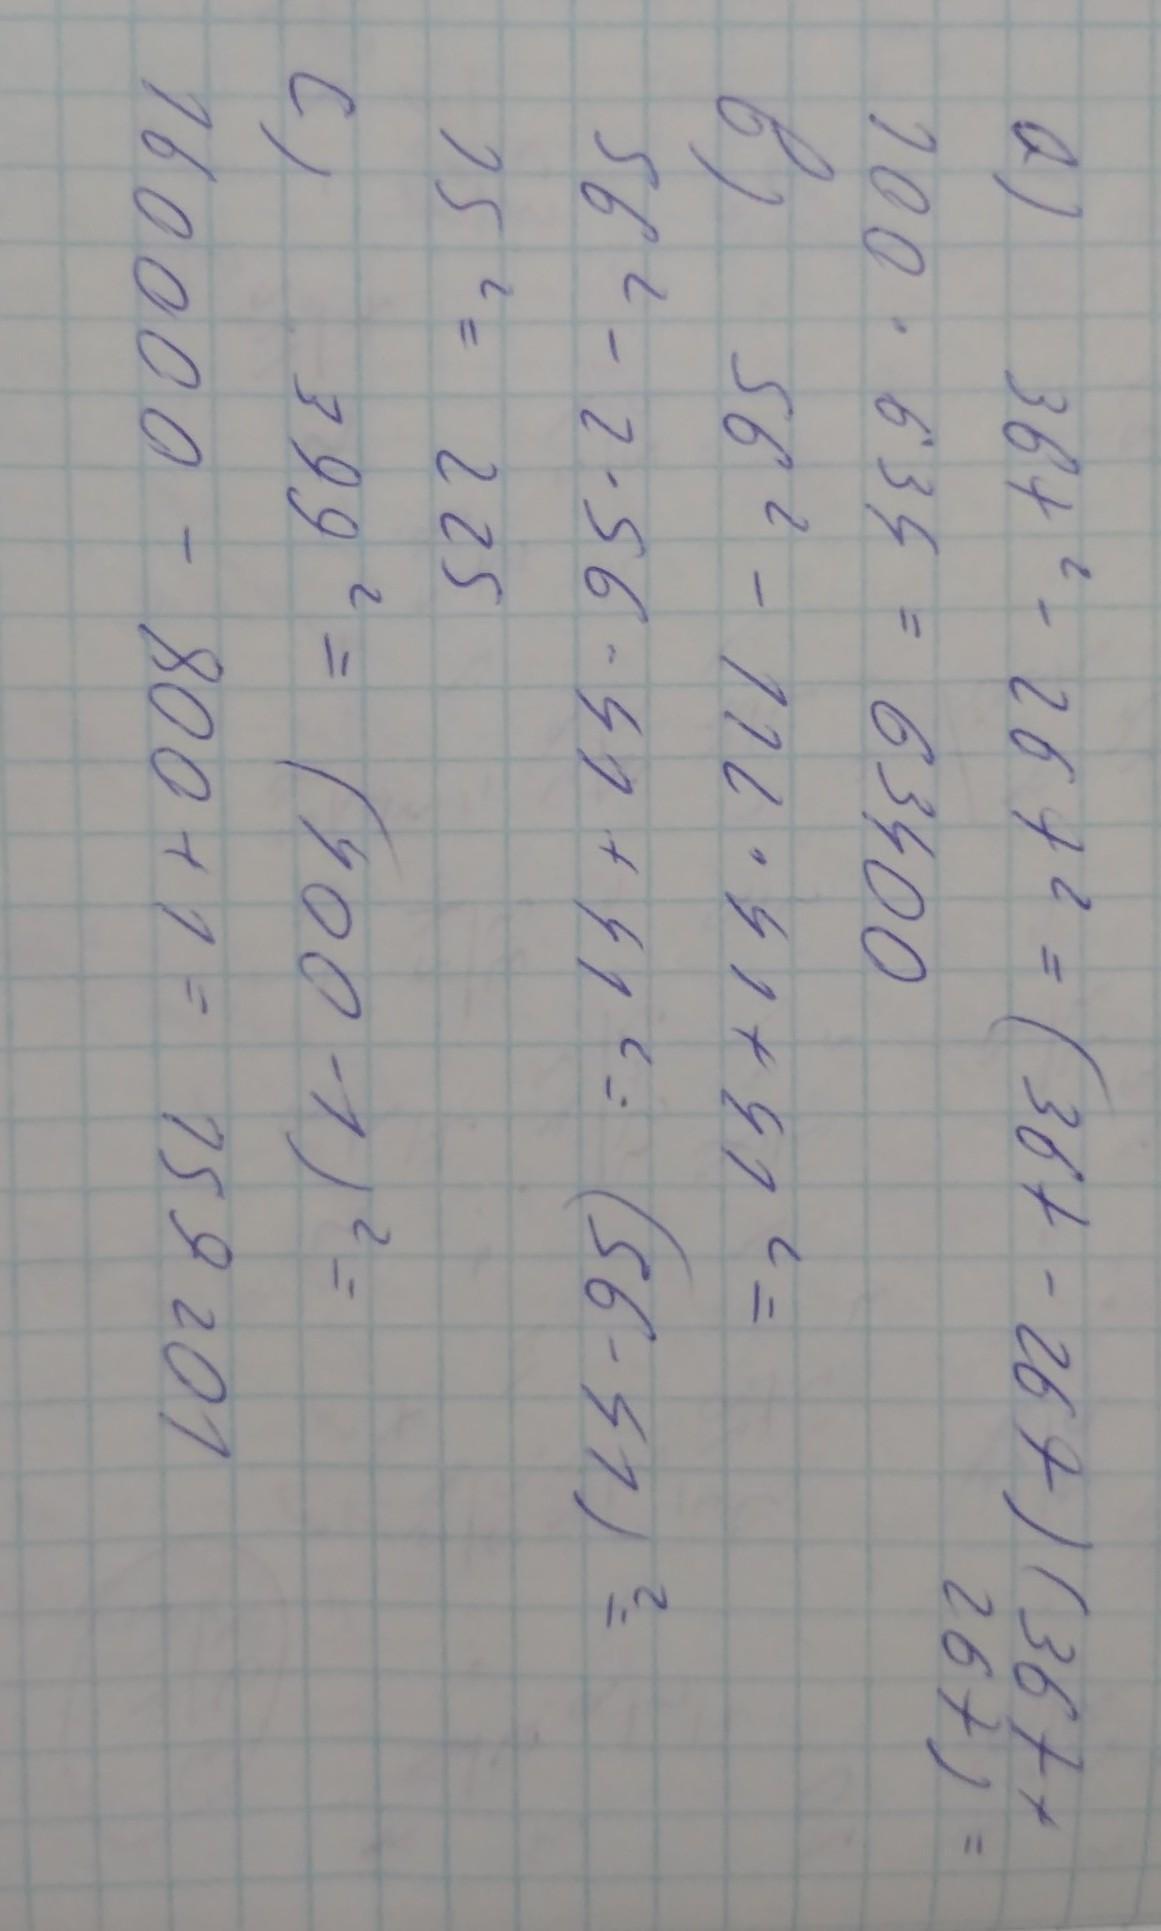 a) 367² - 267² = (367 - 267)(367 +
267) =
100 · 634 = 63400
b) 56² - 112 · 41 + 41² =
56² - 2 · 56 · 41 + 41² = (56 - 41)² =
15² = 225
c) 399² = (400 - 1)² =
160000 - 800 + 1 = 159201